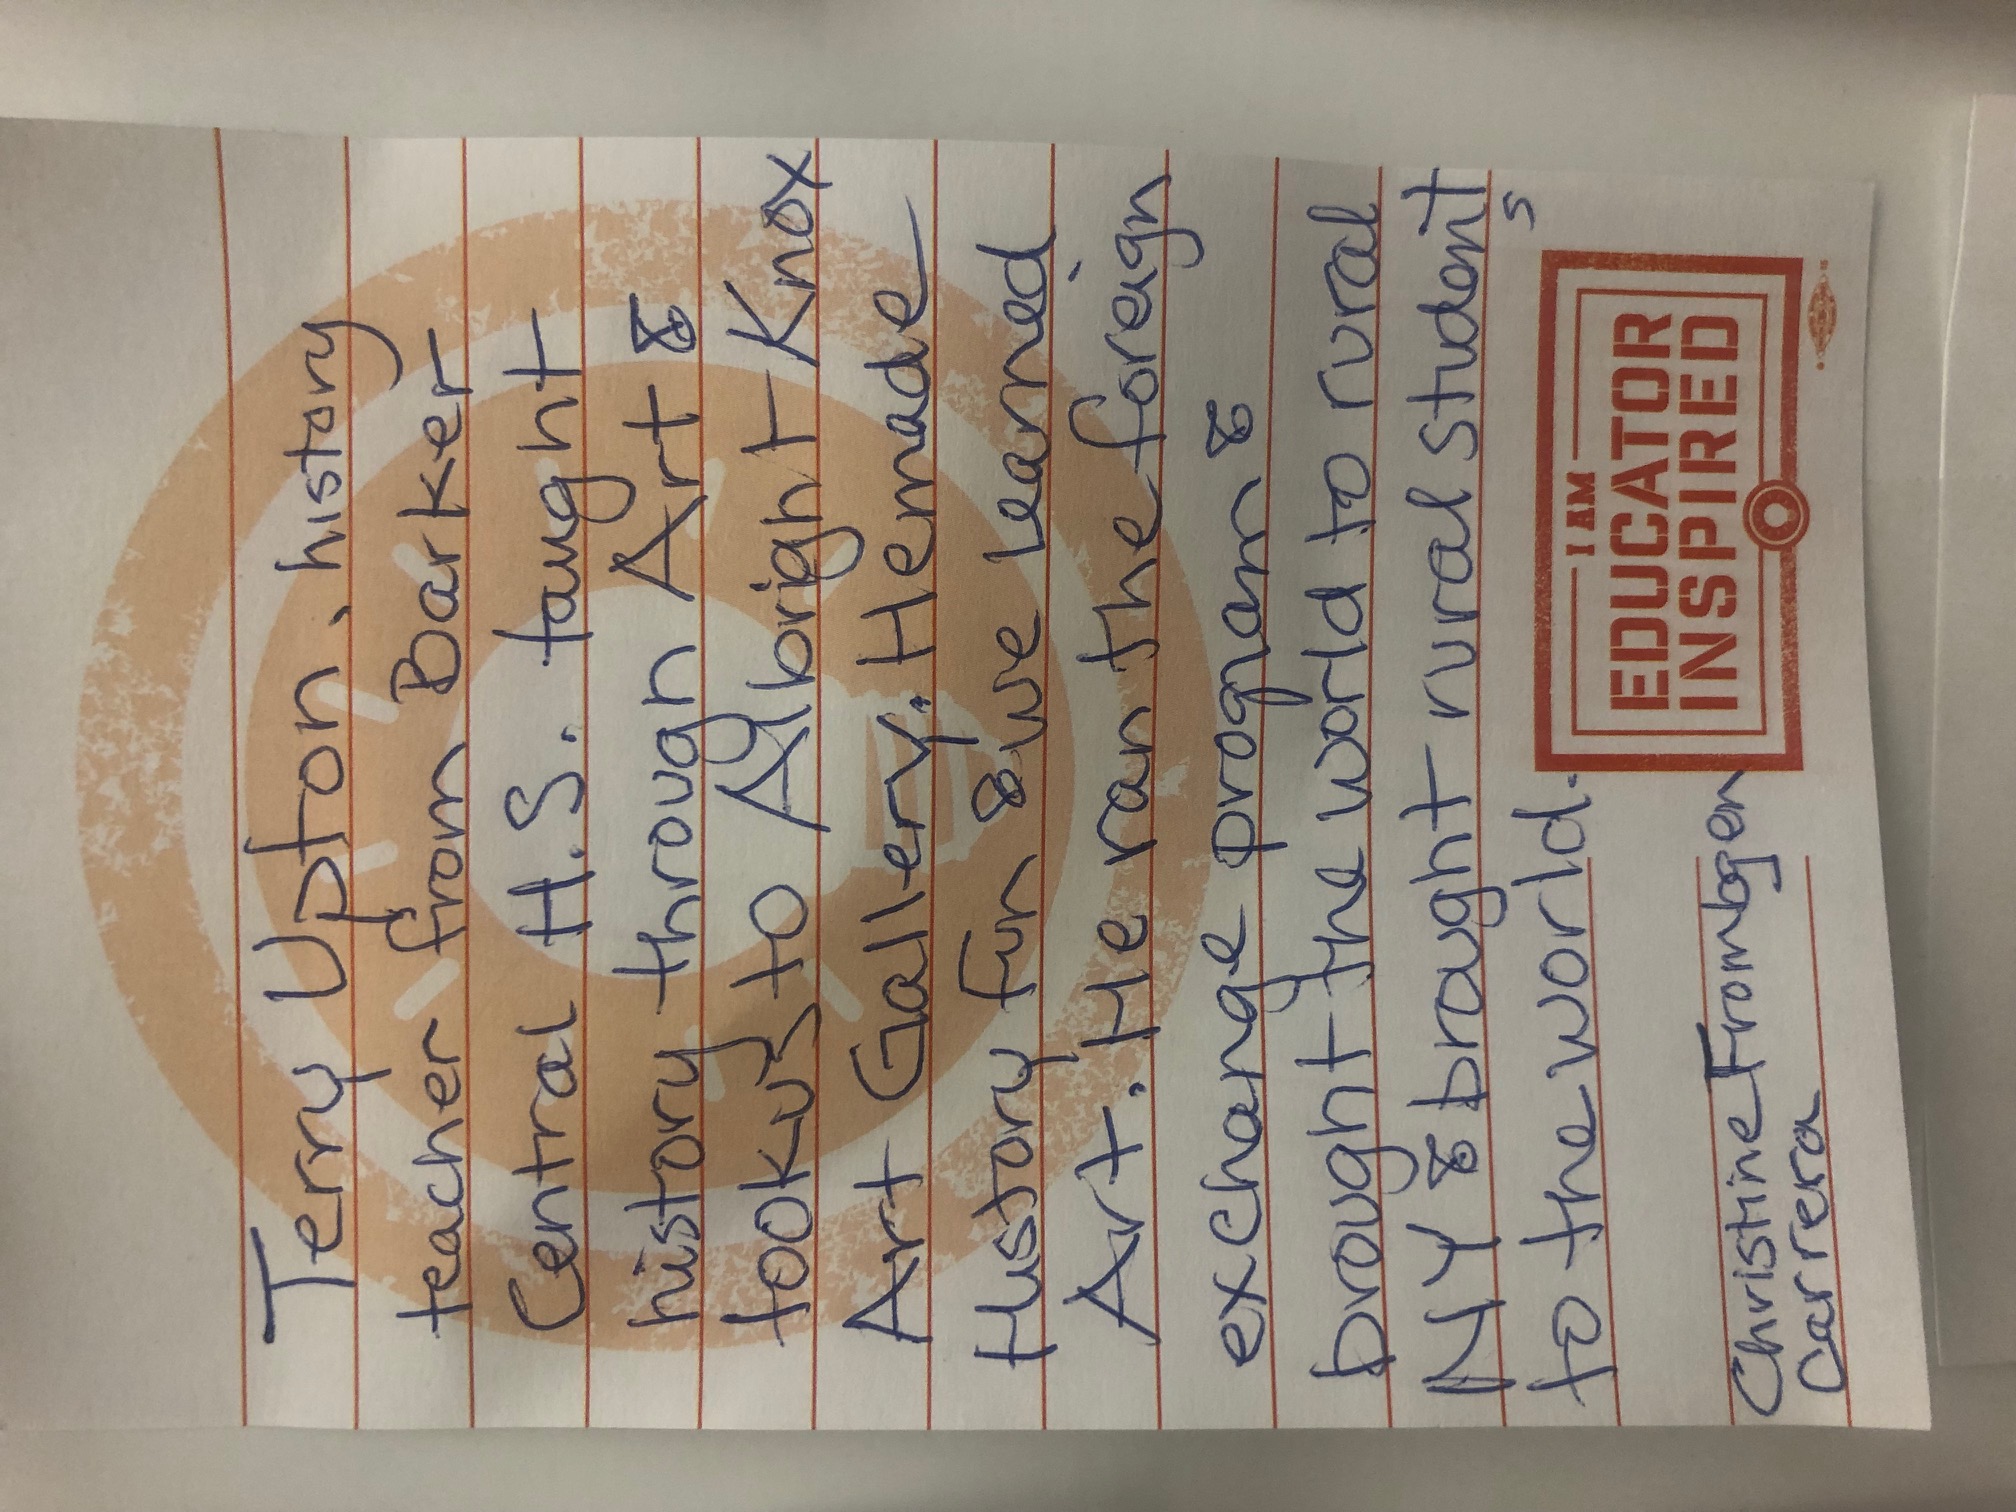 Terry Upton, history
teacher from Barker
Central H.S. taught
history through Art &
took us to Albright Knox
Art Gallery. He made
History fun & we learned
Art. He ran the foreign
exchange program &
brought the world to rural
NY & brought rural students
to the world.
Christine Frombgen
Carrera
I AM
EDUCATOR
INSPIRED